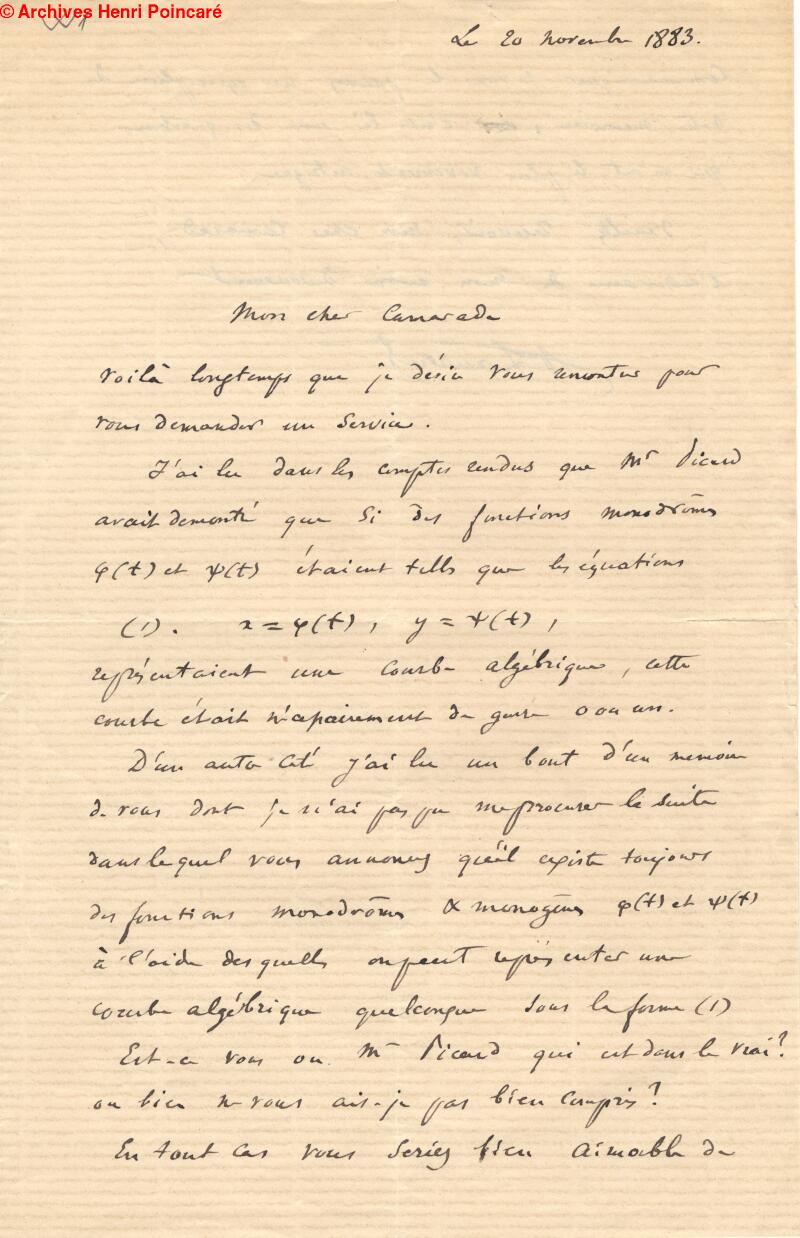 © Archives Henri Poincaré
Le 20 novembre 1883.
Mon cher Camarade
Voilà longtemps que je désire vous rencontrer pour
vous demander un service.
J'ai lu dans les comptes rendus que Mr Picard
avait demontré que si des fonctions monodrômes
φ(t) et ψ(t) étaient telles que les équations
(1). x = φ(t), y = ψ(t),
représentaient une courbe algébrique, cette
courbe était nécapairement de genre 0 ou un.
D'un autre côté j'ai lu un bout d'un memoire
de vous dont je n'ai pas pu me procurer la suite
dans lequel vous annoncez qu'il existe toujours
des fonctions monodrômes & monogènes φ(t) et ψ(t)
à l'aide desquelles on peut représenter une
courbe algébrique quelconque sous la forme (1)
Est-ce vous ou Mr Picard qui est dans le vrai?
ou bien ne vous ais-je pas bien compris?
En tout cas vous seriez bien aimable de